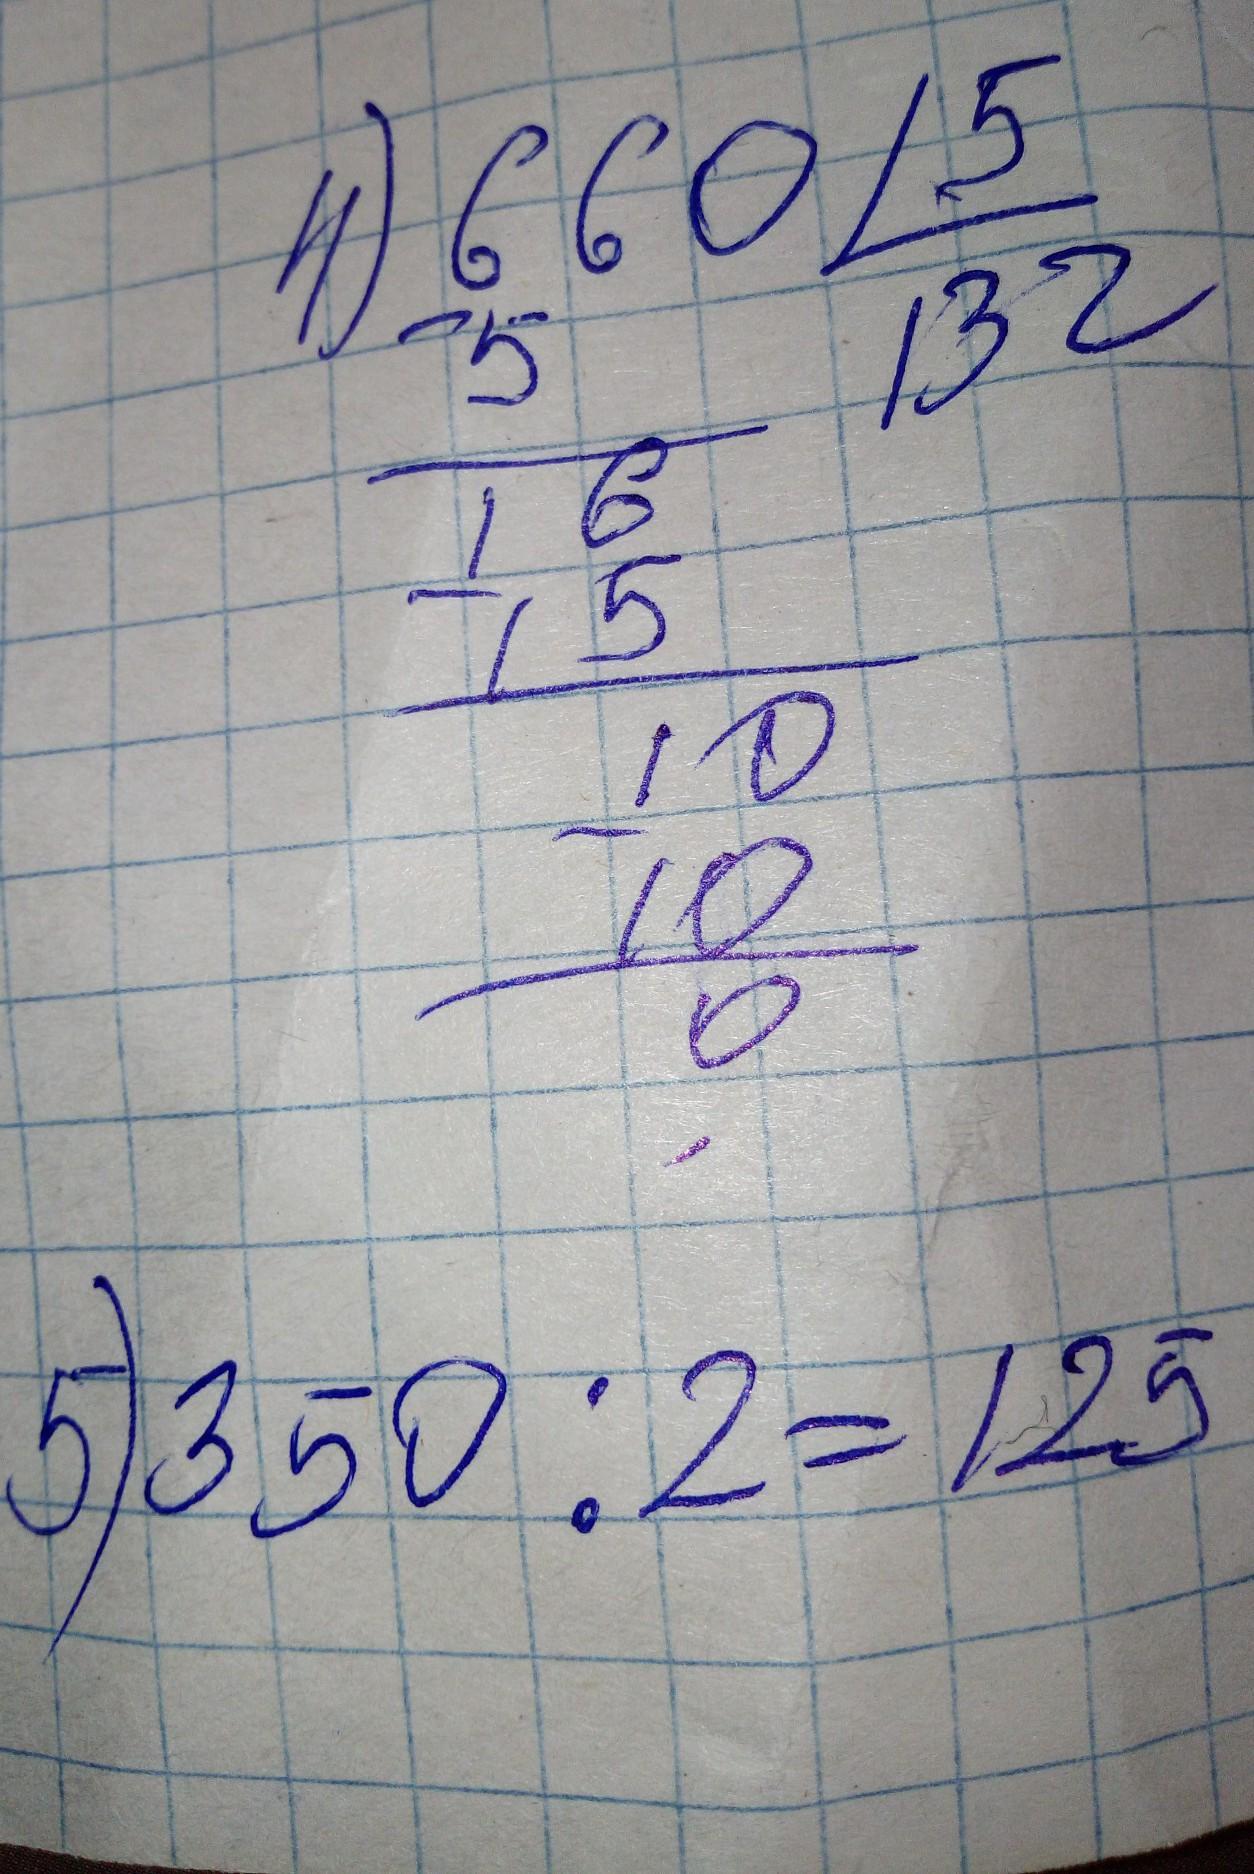 4) 660 5
- 5 132
16
- 15
10
- 10
0
5) 350 : 2 = 125